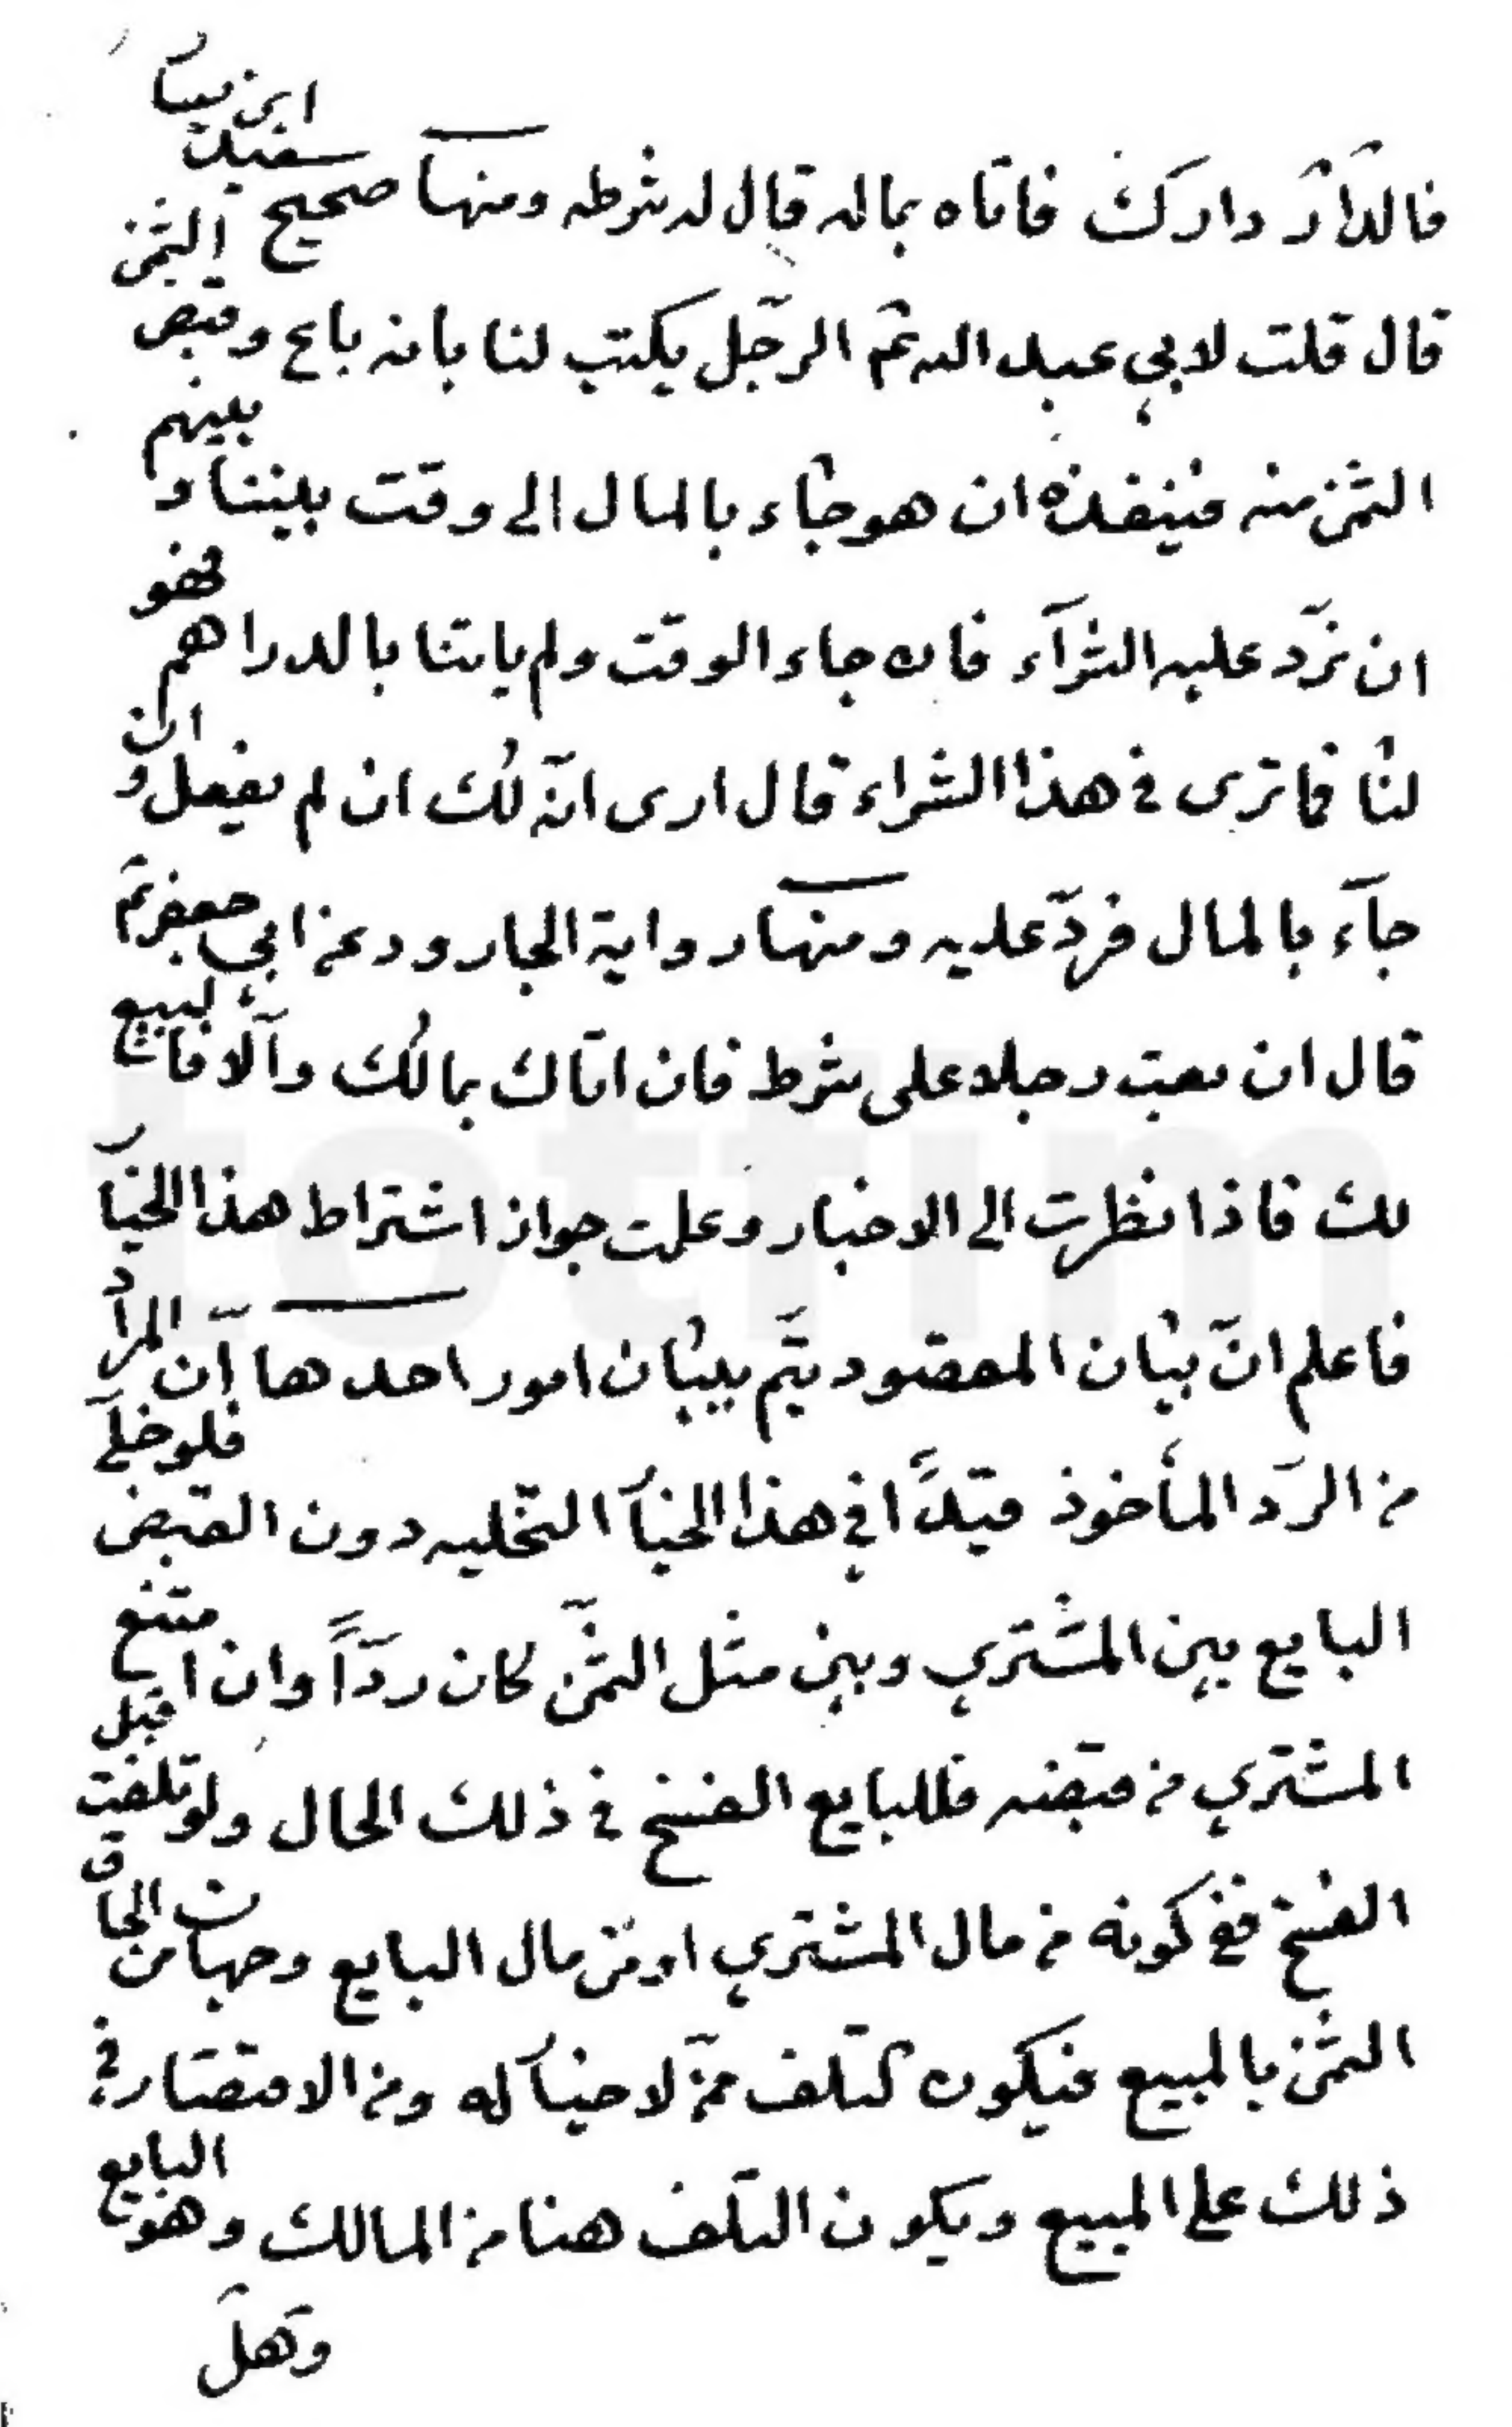 فالدار دارك فاتاه بماله قال له شرطه ومنها صحيح سعيد ابن يسار
قال قلت لابي عبد الله ثم الرجل يكتب لنا بانه باع وقبض الثمن
الثمن منه فينفذه ان هو جاء بالمال الى وقت بيننا وبينهم
ان نرد عليه الشراء فان جاء الوقت ولم ياتنا بالدراهم فهو
لنا فما ترى في هذا الشراء قال ارى انه لك ان لم يفعل وان
جآء بالمال فردّ عليه ومنها رواية الجارود عن ابي جعفر ع
قال ان بعت رجلا على شرط فان اتاك بمالك والّا فالبيع
لك فاذا نظرت الى الاخبار وعلمت جواز اشتراط هذا الخيار
فاعلم انّ بيان المقصود يتم ببيان امور احدها انّ المراد
من الردّ المأخوذ قيداً في هذا الخيار التخليه دون القبض فلو خلّى
البايع بين المشتري وبين مثل الثمن كان ردّاً وان امتنع
المشتري من قبضه فللبايع الفسخ في ذلك الحال ولو تلفت قبل
الفسخ ففي كونه من مال المشتري او من مال البايع وجهان من الحاق
الثمن بالمبيع فيكون كتلف ممن لا خيار له ومن الاقتصار في
ذلك على المبيع ويكون التلف هنا من المالك وهو البايع
وهل